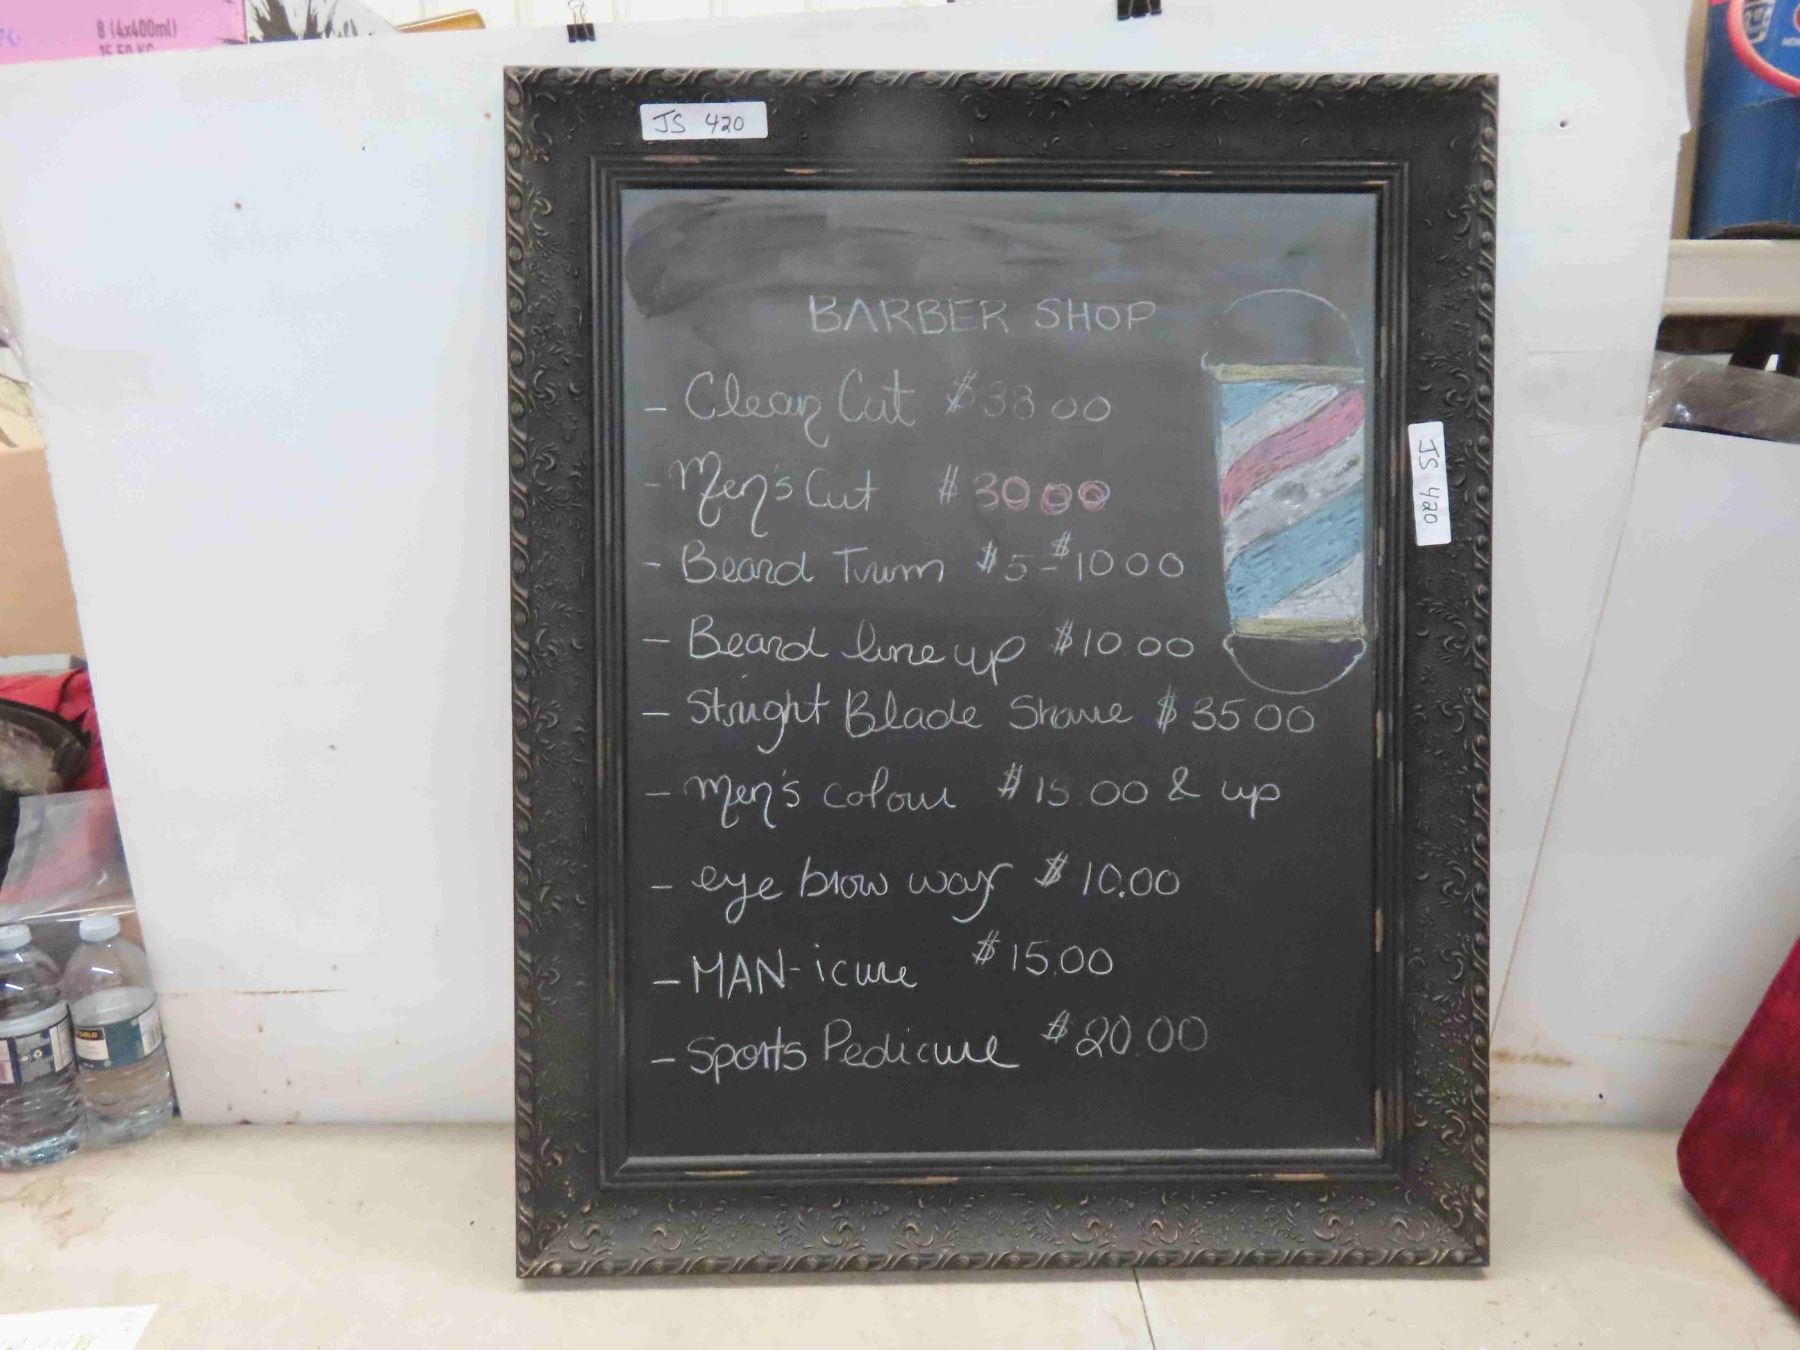 8 (4x400ml)
15.50 KG
JS 420
BARBER SHOP
- Clean Cut $38 00
- Men's Cut $30 00
- Beard Trim $5 - $10 00
- Beard line up $10.00
- Straight Blade Shave $35 00
- Men's colour $15.00 & up
- eye brow wax $10.00
- MAN-icure $15.00
- Sports Pedicure $20.00
JS 420